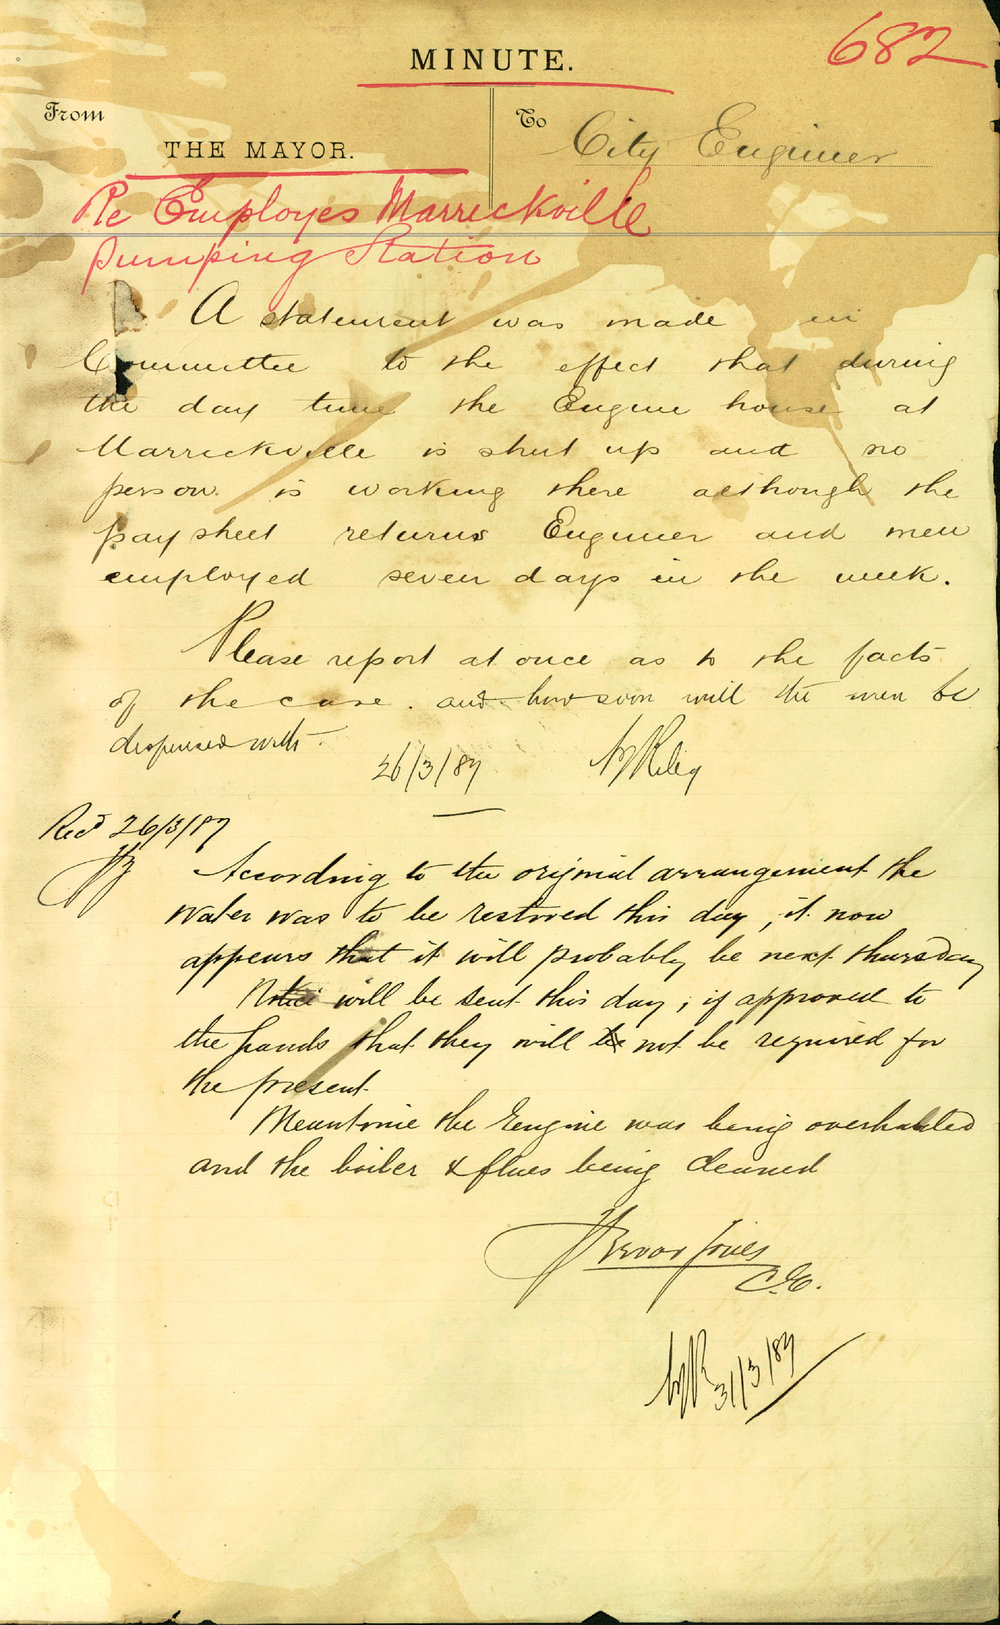 682
MINUTE.
From
To
THE MAYOR.
City Engineer
Re Employes Marrickville
Pumping Station
A statement was made in
Committee to the effect that during
the day time the Engine house at
Marrickville is shut up and no
person is working there although the
pay sheet returns Engineer and men
employed seven days in the week.
Please report at once as to the facts
of the case. and how soon will the men be
dispensed with.
26/3/87 AJ Riley
Recd 26/3/87
According to the original arrangement the
water was to be restored this day, it now
appears that it will probably be next thursday
Notice will be sent this day; if approved to
the hands that they will not be required for
the present
Meantime the Engine was being overhauled
and the boiler & flues being cleaned
Trevor Jones
C.E.
AJR 31/3/87